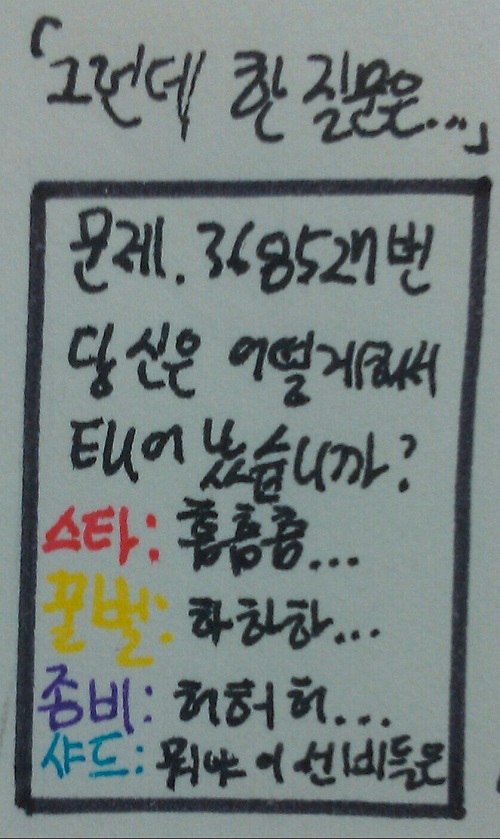 「그런데 한 질문은...」
문제. 368527번
당신은 어떻게해서
태어 났습니까?
스타: 흠흠흠...
꿀벌: 하하하...
좀비: 허허허...
샤드: 뭐야 이 선비들은